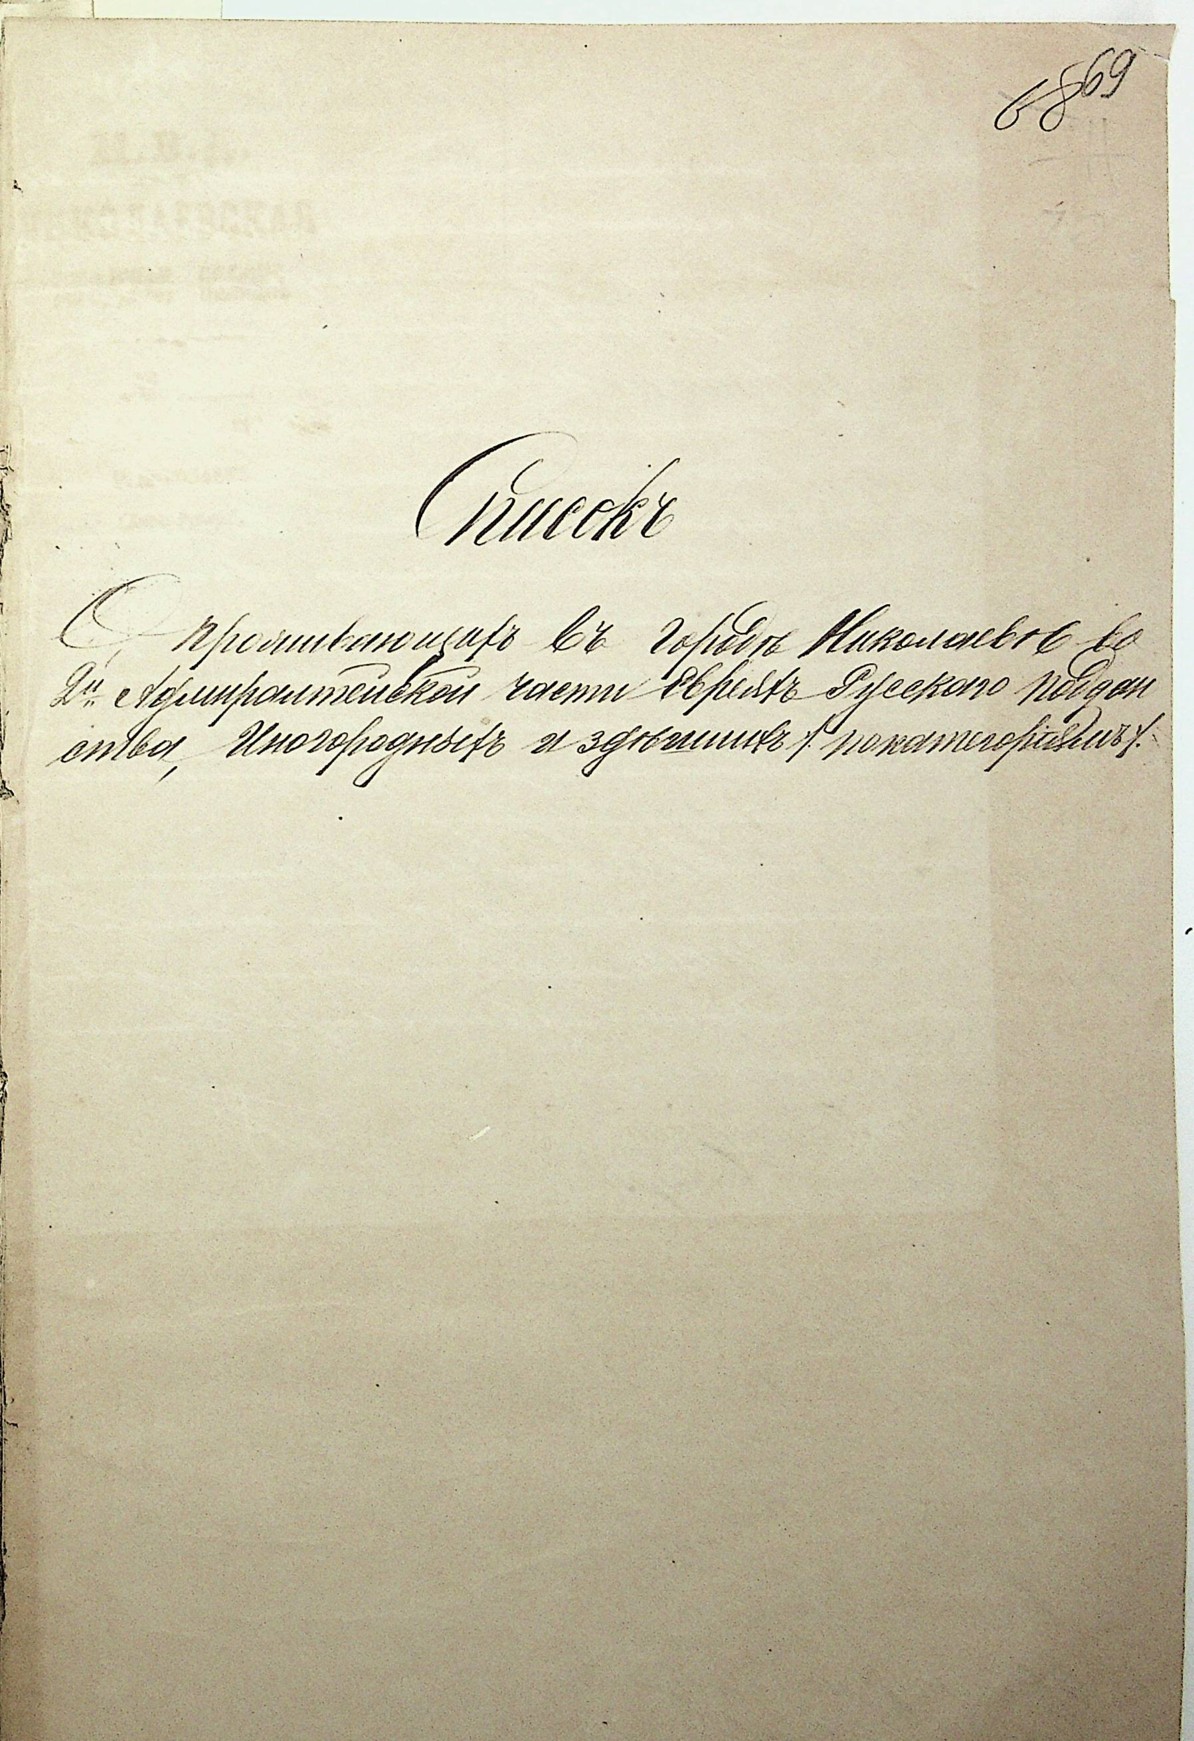 68 69
Списокъ
О проживающихъ въ городѣ Николаевѣ во
2й Адмиралтейской части Евреяхъ Русскаго поддан
ства, Иногородныхъ и здѣшнихъ /. покатегоріямъ /.